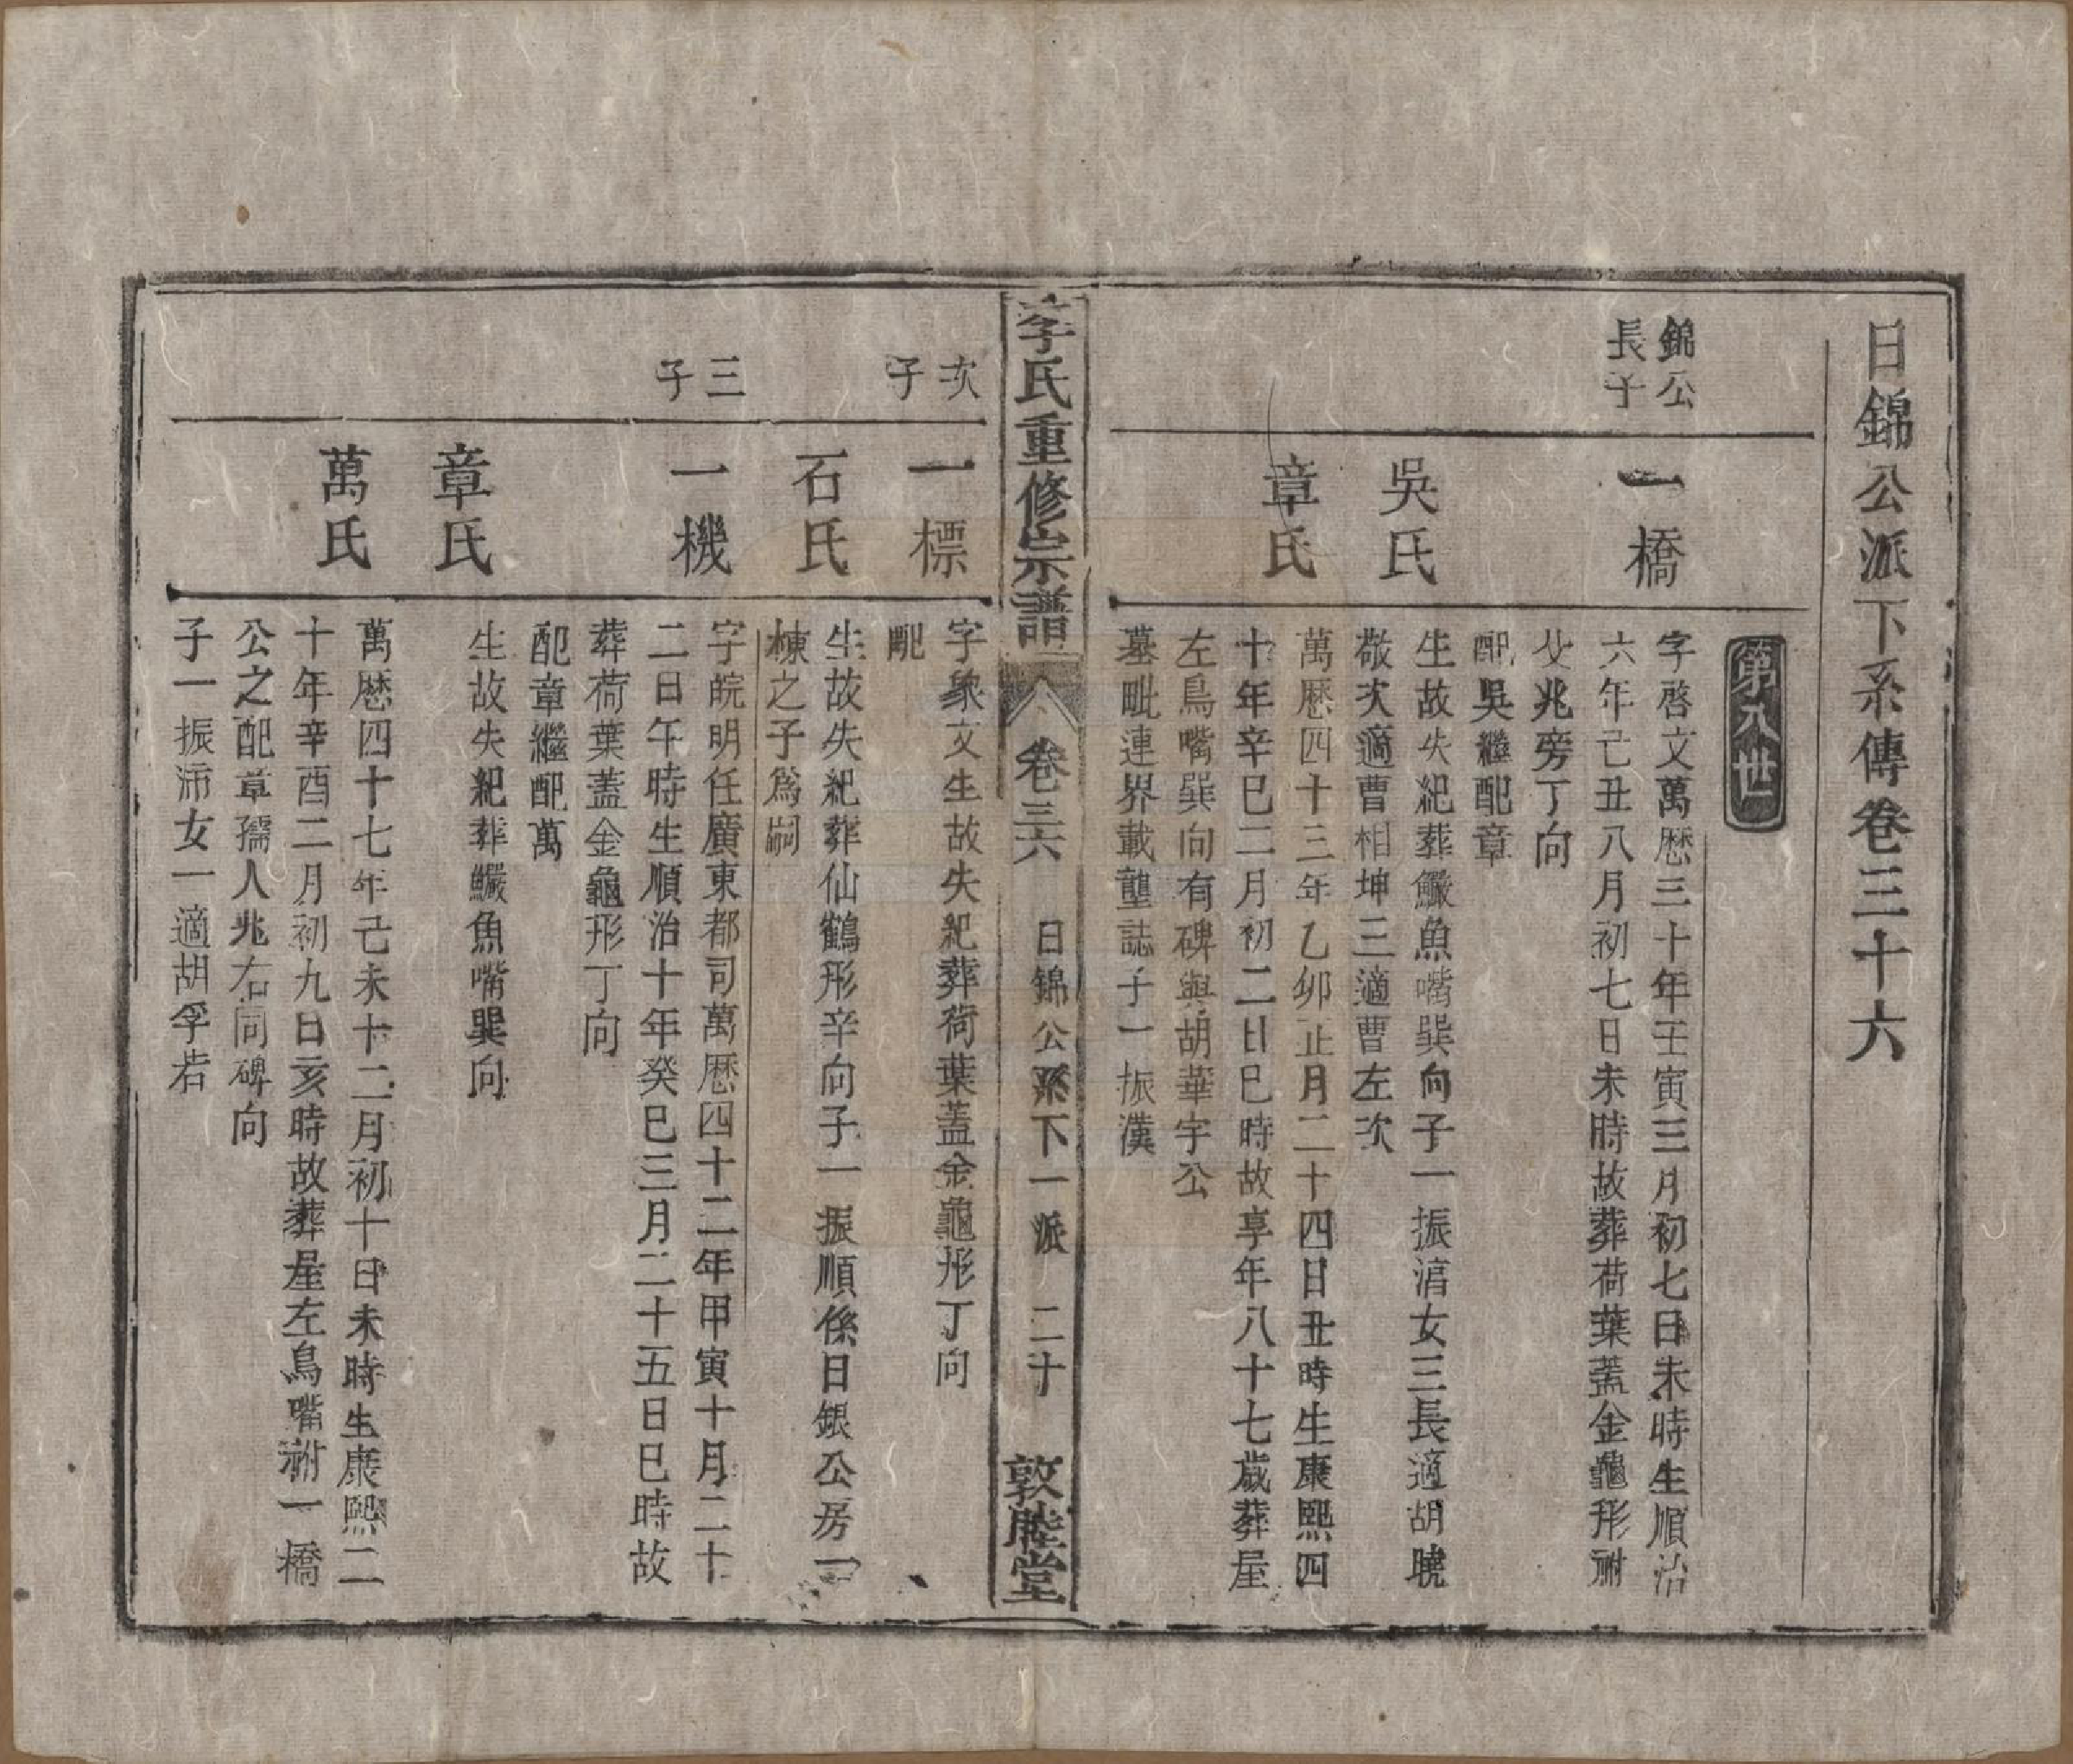 日錦公派下系傳卷三十六
第八世
錦公
長子
一橋
字啓文萬歷三十年壬寅三月初七日未時生順治
六年己丑八月初七日未時故葬荷葉蓋金龜形祔
父兆旁丁向
配吳繼配章
吳氏
生故失紀葬鱖魚嘴巽向子一振㴶女三長適胡曉
敬次適曹相坤三適曹左次
章氏
萬歷四十三年乙卯正月二十四日丑時生康熙四
十年辛巳二月初二日巳時故享年八十七歲葬屋
左鳥嘴巽向有碑與胡華宇公
墓毗連界載壟誌子一振漢
李氏重修宗譜
卷三六
日錦公系下一派
二十
敦睦堂
次
子
一標
字象文生故失紀葬荷葉蓋金龜形丁向
配
石氏
生故失紀葬仙鶴形辛向子一振順係日銀公房一
棟之子爲嗣
三
子
一機
字皖明任廣東都司萬歷四十二年甲寅十月二十
二日午時生順治十年癸巳三月二十五日巳時故
葬荷葉蓋金龜形丁向
配章繼配萬
章氏
生故失紀葬鱖魚嘴巽向
萬氏
萬歷四十七年己未十二月初十日未時生康熙二
十年辛酉二月初九日亥時故葬屋左鳥嘴祔一橋
公之配章孺人兆右同碑向
子一振沛女一適胡孚若